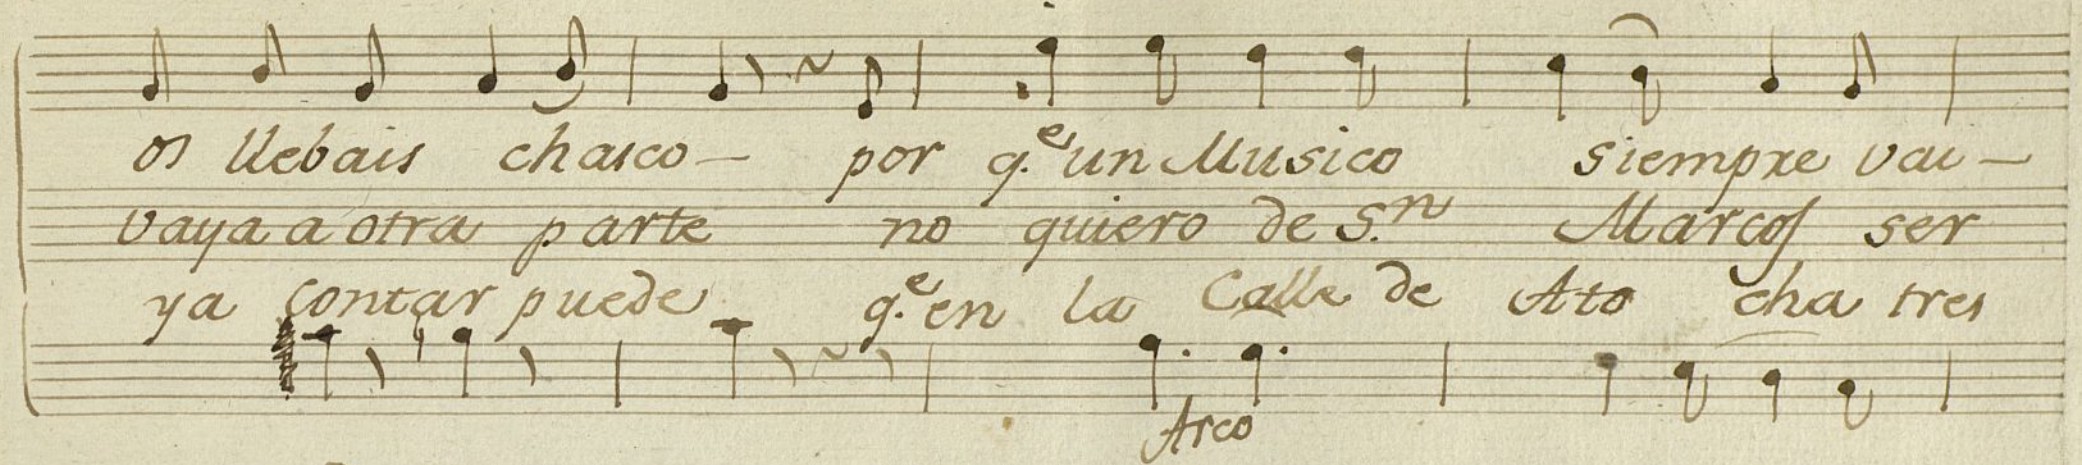 os llebais chasco - por q.e un Musico siempre vai -
vaya a otra parte no quiero de S.n Marcos ser
ya contar puede q.e en la Calle de Ato cha tres
Arco